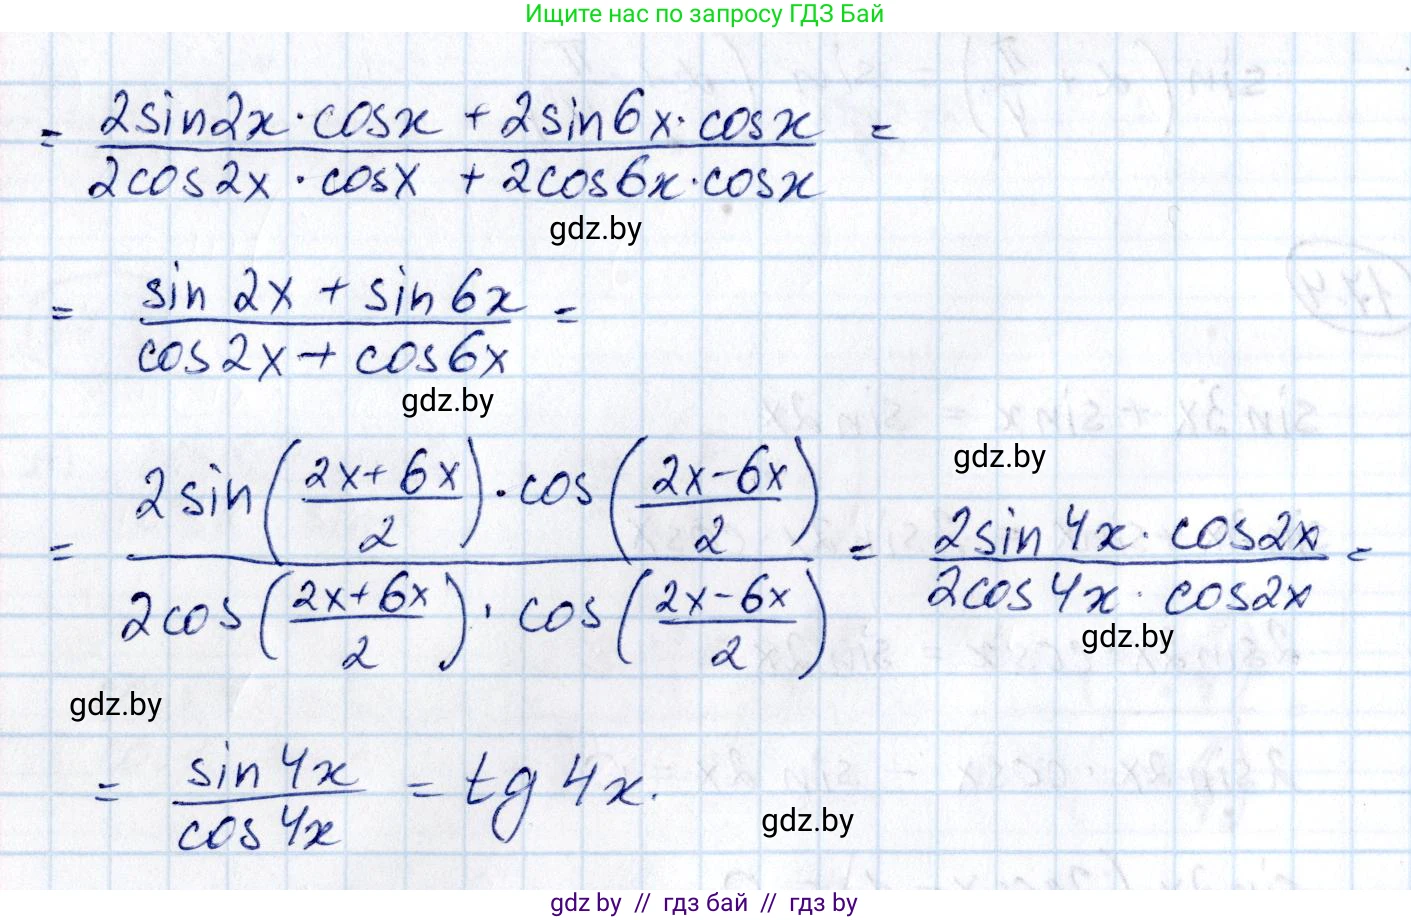 Ищите нас по запросу ГДЗ Бай
= (2sin2x·cosx + 2sin6x·cosx)/(2cos2x·cosx + 2cos6x·cosx) =
gdz.by
= (sin2x + sin6x)/(cos2x + cos6x) =
gdz.by
gdz.by
= (2sin((2x+6x)/2)·cos((2x-6x)/2))/(2cos((2x+6x)/2)·cos((2x-6x)/2)) = (2sin4x·cos2x)/(2cos4x·cos2x) =
gdz.by
gdz.by
= sin4x/cos4x = tg4x.
gdz.by
gdz.by // гдз бай // гдз by